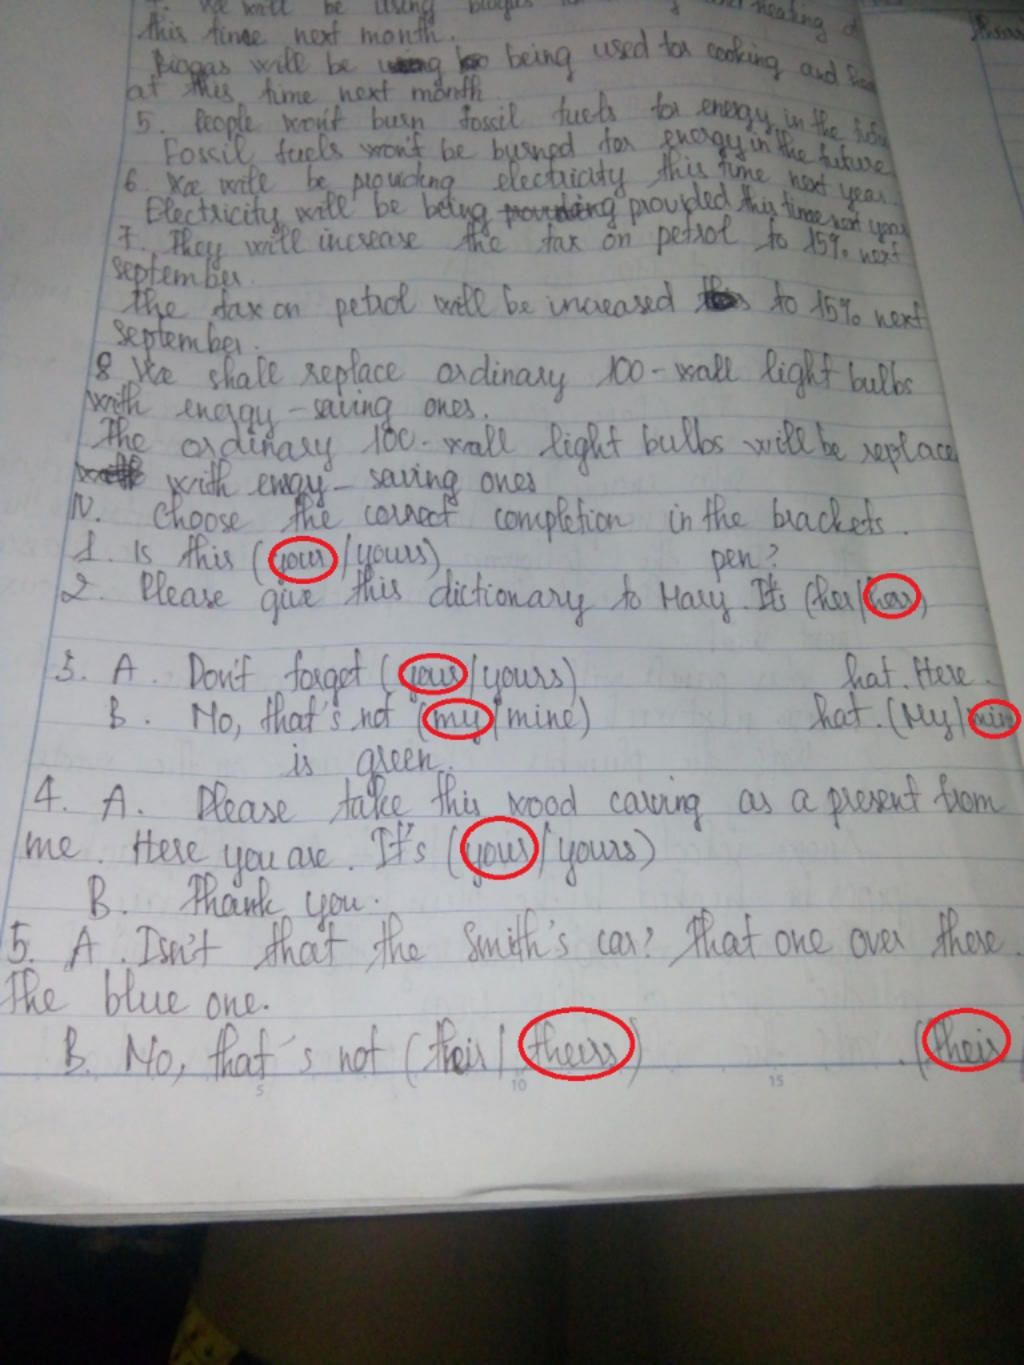 We will be using biogas heating
this time next month.
Biogas will be being used for cooking and
at this time next month
5. People won't burn fossil fuels for energy in the future
Fossil fuels won't be burned for energy in the future
6. We will be providing electricity this time next year.
Electricity will be being provided this time next year
7. They will increase the tax on petrol to 15% next
september.
The tax on petrol will be increased to 15% next
september.
8 We shall replace ordinary 100-wall light bulbs
with energy-saving ones.
The ordinary 100-wall light bulbs will be replace
with enrgy-saving ones
IV. Choose the correct completion in the brackets.
1. Is this (your/yours) pen?
2. Please give this dictionary to Mary. It's (her/hers)
3. A. Don't forget (your/yours) hat. Here.
B. No, that's not (my/mine) hat. (My/mine
is green.
4. A. Please take this wood carving as a present from
me. Here you are. It's (your/yours)
B. Thank you.
5. A. Isn't that the Smith's car? That one over there.
The blue one.
B. No, that's not (their/theirs) . (their
5 10 15